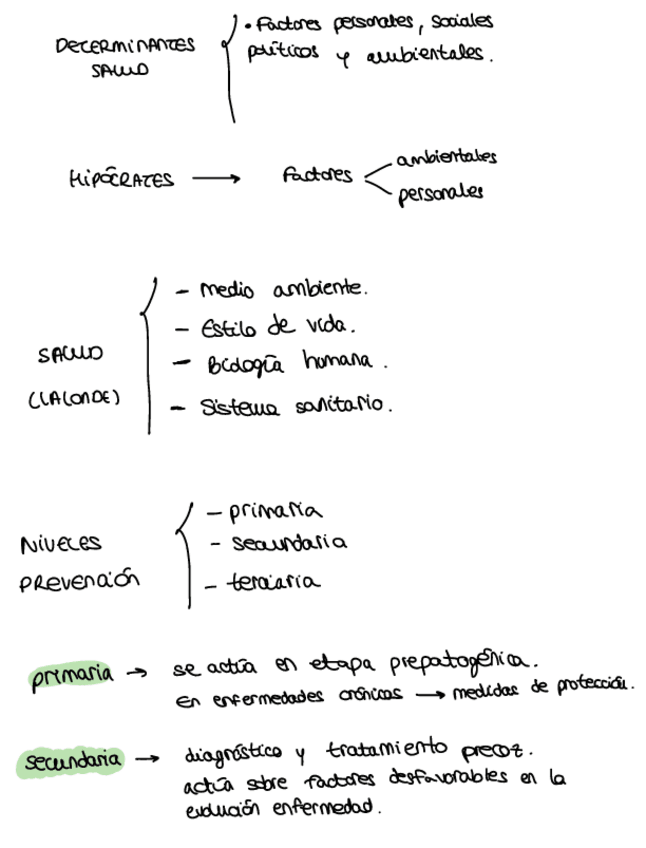 DETERMINANTES
SALUD
• Factores personales, sociales
políticos y ambientales.
HIPÓCRATES → factores
ambientales
personales
SALUD
(LALONDE)
- Medio ambiente.
- Estilo de vida.
- Biología humana.
- Sistema sanitario.
NIVELES
PREVENCIÓN
- primaria
- secundaria
- terciaria
primaria → se actúa en etapa prepatogénica.
En enfermedades crónicas → medidas de protección.
secundaria → diagnóstico y tratamiento precoz.
actúa sobre factores desfavorables en la
evolución enfermedad.